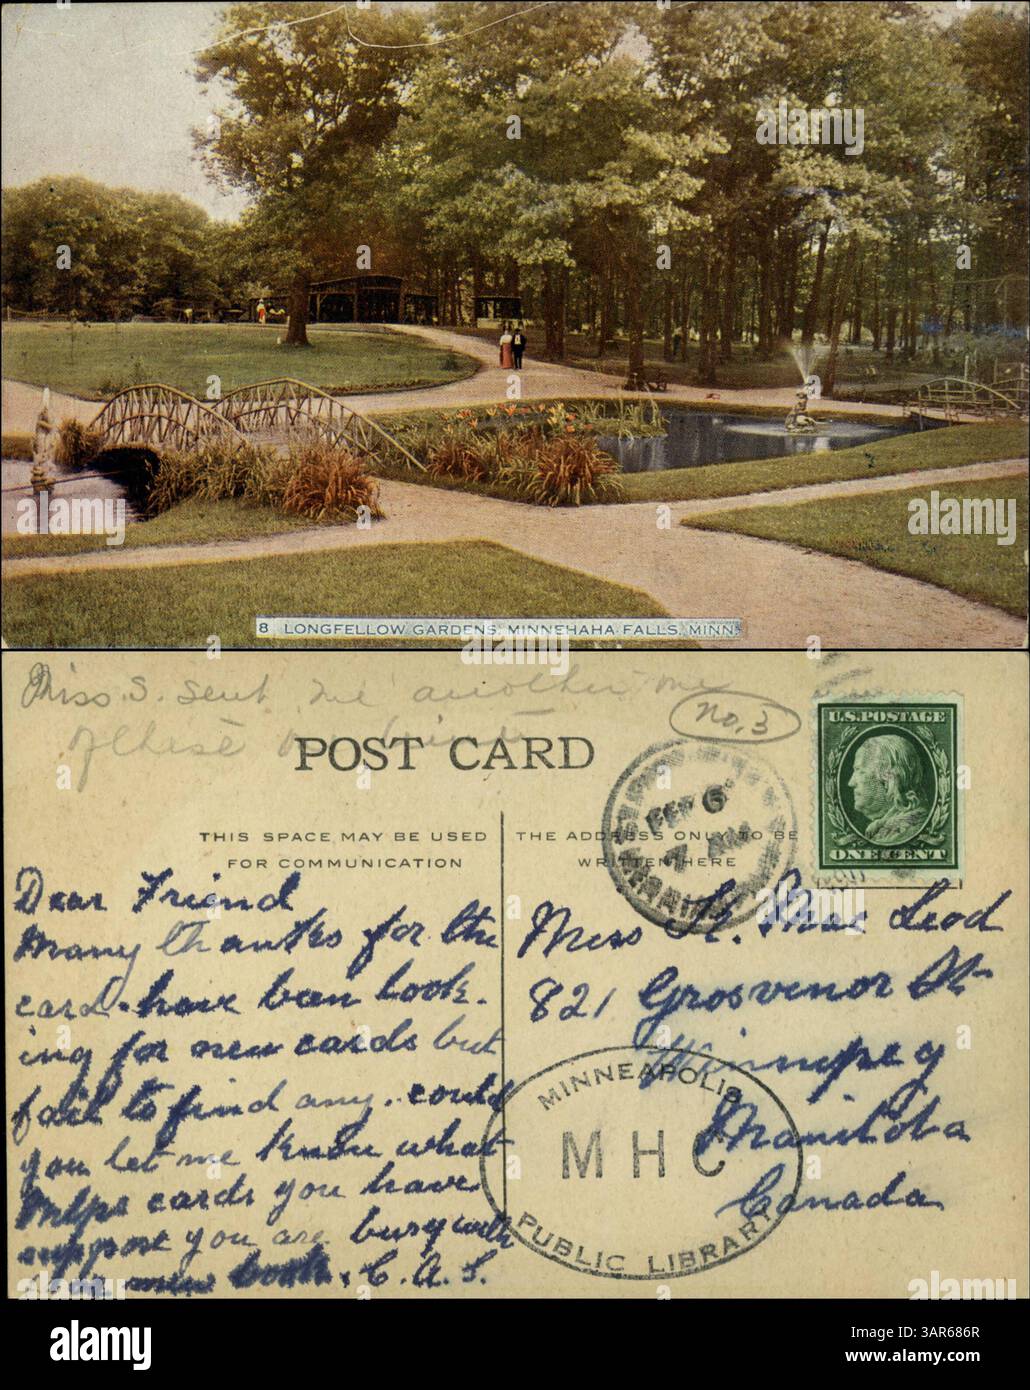 alamy
8 LONGFELLOW GARDENS, MINNEHAHA FALLS, MINN.
Miss S. sent me another one
of these
No. 3
POST CARD
FEB 6
7 AM
U.S. POSTAGE
ONE CENT
THIS SPACE MAY BE USED
FOR COMMUNICATION
THE ADDRESS ONLY TO BE
WRITTEN HERE
Dear Friend
Many thanks for the
card. have been look-
ing for new cards but
fail to find any. could
you let me know what
Mlps cards you have
suppose you are busy with
new book. C. A. S.
Miss K. Mac Leod
821 Grosvenor St
Winnipeg
Manitoba
Canada
MINNEAPOLIS
M H C
PUBLIC LIBRARY
alamy
Image ID: 3AR686R
www.alamy.com